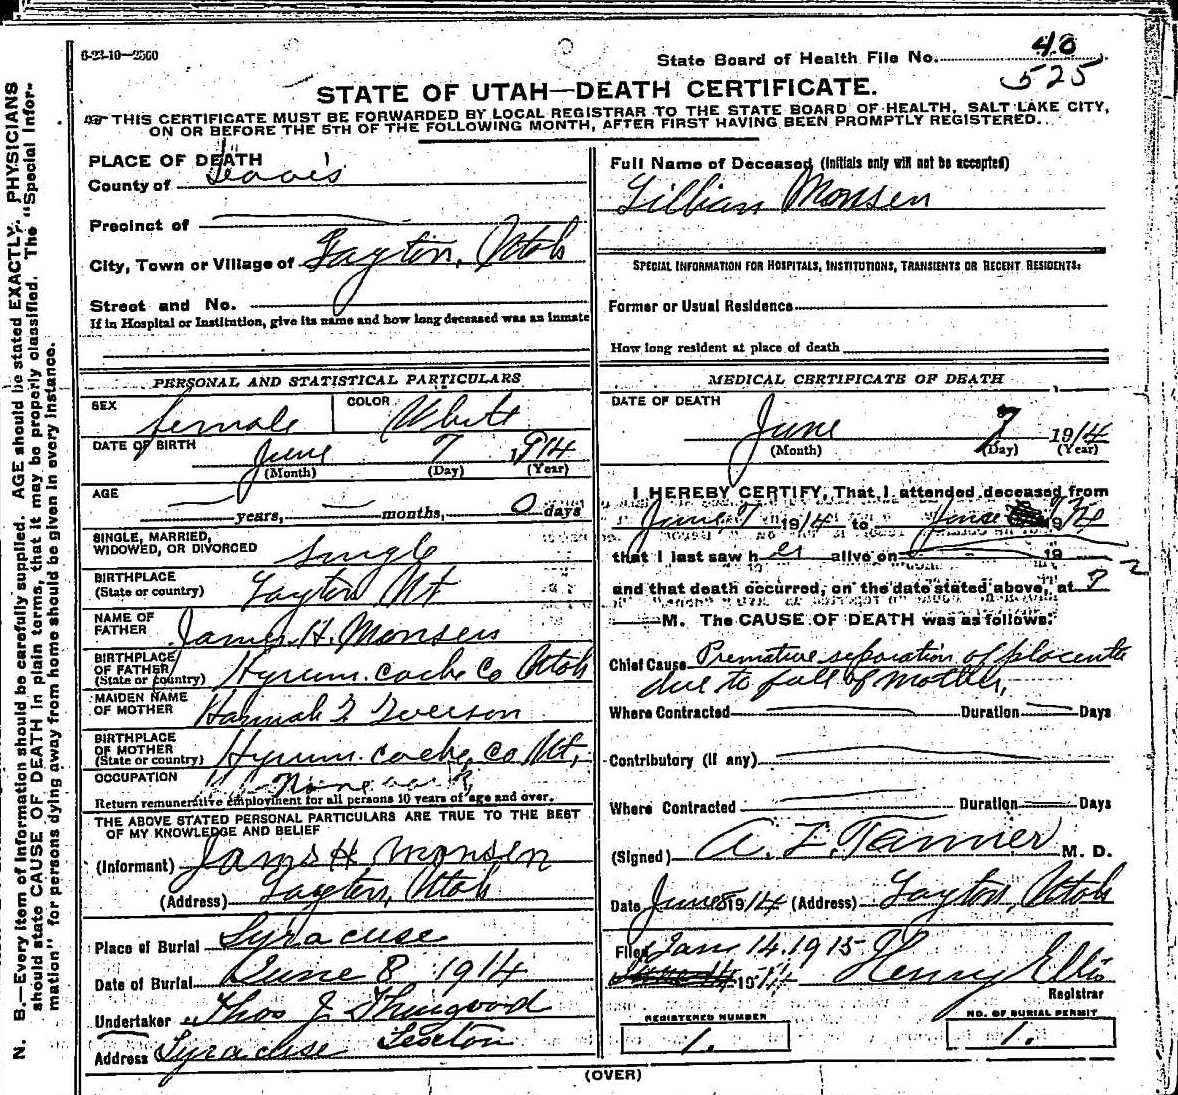 6-23-10—2500
State Board of Health File No. 40
525
STATE OF UTAH—DEATH CERTIFICATE.
THIS CERTIFICATE MUST BE FORWARDED BY LOCAL REGISTRAR TO THE STATE BOARD OF HEALTH, SALT LAKE CITY,
ON OR BEFORE THE 5TH OF THE FOLLOWING MONTH, AFTER FIRST HAVING BEEN PROMPTLY REGISTERED.
PLACE OF DEATH
County of Davis
Precinct of
City, Town or Village of Layton, Utah
Street and No.
If in Hospital or Institution, give its name and how long deceased was an inmate
PERSONAL AND STATISTICAL PARTICULARS
SEX female COLOR White
DATE OF BIRTH June 7 1914
(Month) (Day) (Year)
AGE
years, months, 0 days
SINGLE, MARRIED,
WIDOWED, OR DIVORCED single
BIRTHPLACE
(State or country) Layton Ut
NAME OF
FATHER James H. Monsen
BIRTHPLACE
OF FATHER
(State or country) Hyrum. cache Co Utah
MAIDEN NAME
OF MOTHER Hannah F. Iverson
BIRTHPLACE
OF MOTHER
(State or country) Hyrum. cache, co Ut,
OCCUPATION None
Return remunerative employment for all persons 10 years of age and over.
THE ABOVE STATED PERSONAL PARTICULARS ARE TRUE TO THE BEST
OF MY KNOWLEDGE AND BELIEF
(Informant) James H Monsen
(Address) Layton, Utah
Place of Burial Syracuse
Date of Burial June 8 1914
Undertaker Thos J Thurgood
Sexton
Address Syracuse
Full Name of Deceased (Initials only will not be accepted)
Lillian Monsen
SPECIAL INFORMATION FOR HOSPITALS, INSTITUTIONS, TRANSIENTS OR RECENT RESIDENTS:
Former or Usual Residence
How long resident at place of death
MEDICAL CERTIFICATE OF DEATH
DATE OF DEATH
June 7 1914
(Month) (Day) (Year)
I HEREBY CERTIFY, That I attended deceased from
June 7 1914 to June 1914
that I last saw her alive on 19
and that death occurred, on the date stated above, at ?
M. The CAUSE OF DEATH was as follows:
Chief Cause Premature separation of placenta
due to fall of mother,
Where Contracted Duration Days
Contributory (if any)
Where Contracted Duration Days
(Signed) A. Z. Tanner M. D.
Date June 8 1914 (Address) Layton, Utah
Filed Jan 14. 1915 Henry Ellis
Registrar
REGISTERED NUMBER
1.
NO. OF BURIAL PERMIT
1.
(OVER)
N. B.—Every item of information should be carefully supplied. AGE should be stated EXACTLY. PHYSICIANS
should state CAUSE OF DEATH in plain terms, that it may be properly classified. The "Special Infor-
mation" for persons dying away from home should be given in every instance.